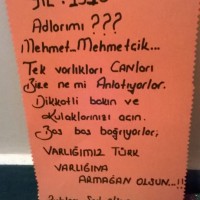 YIL: 1915
Adlarımı ???
Mehmet-Mehmetcik...
Tek varlıkları CANları
Bize ne mi Anlatıyorlar.
Dikkatli bakın ve
Kulaklarınızı açın.
Bas bas bağrıyorlar;
VARLIĞIMIZ TÜRK
VARLIĞINA
ARMAĞAN OLSUN...!!